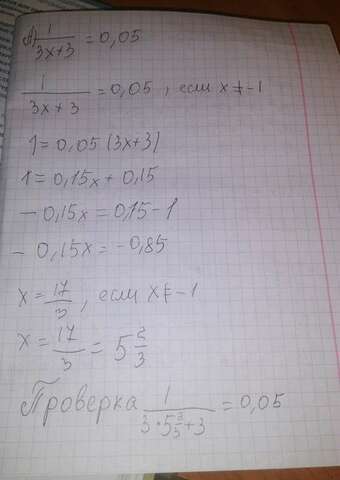 А) 1/(3x+3) = 0,05
1/(3x+3) = 0,05, если x ≠ -1
1 = 0,05 (3x+3)
1 = 0,15x + 0,15
- 0,15x = 0,15 - 1
- 0,15x = -0,85
x = 17/3, если x ≠ -1
x = 17/3 = 5 2/3
Проверка 1/(3·5 2/3+3) = 0,05